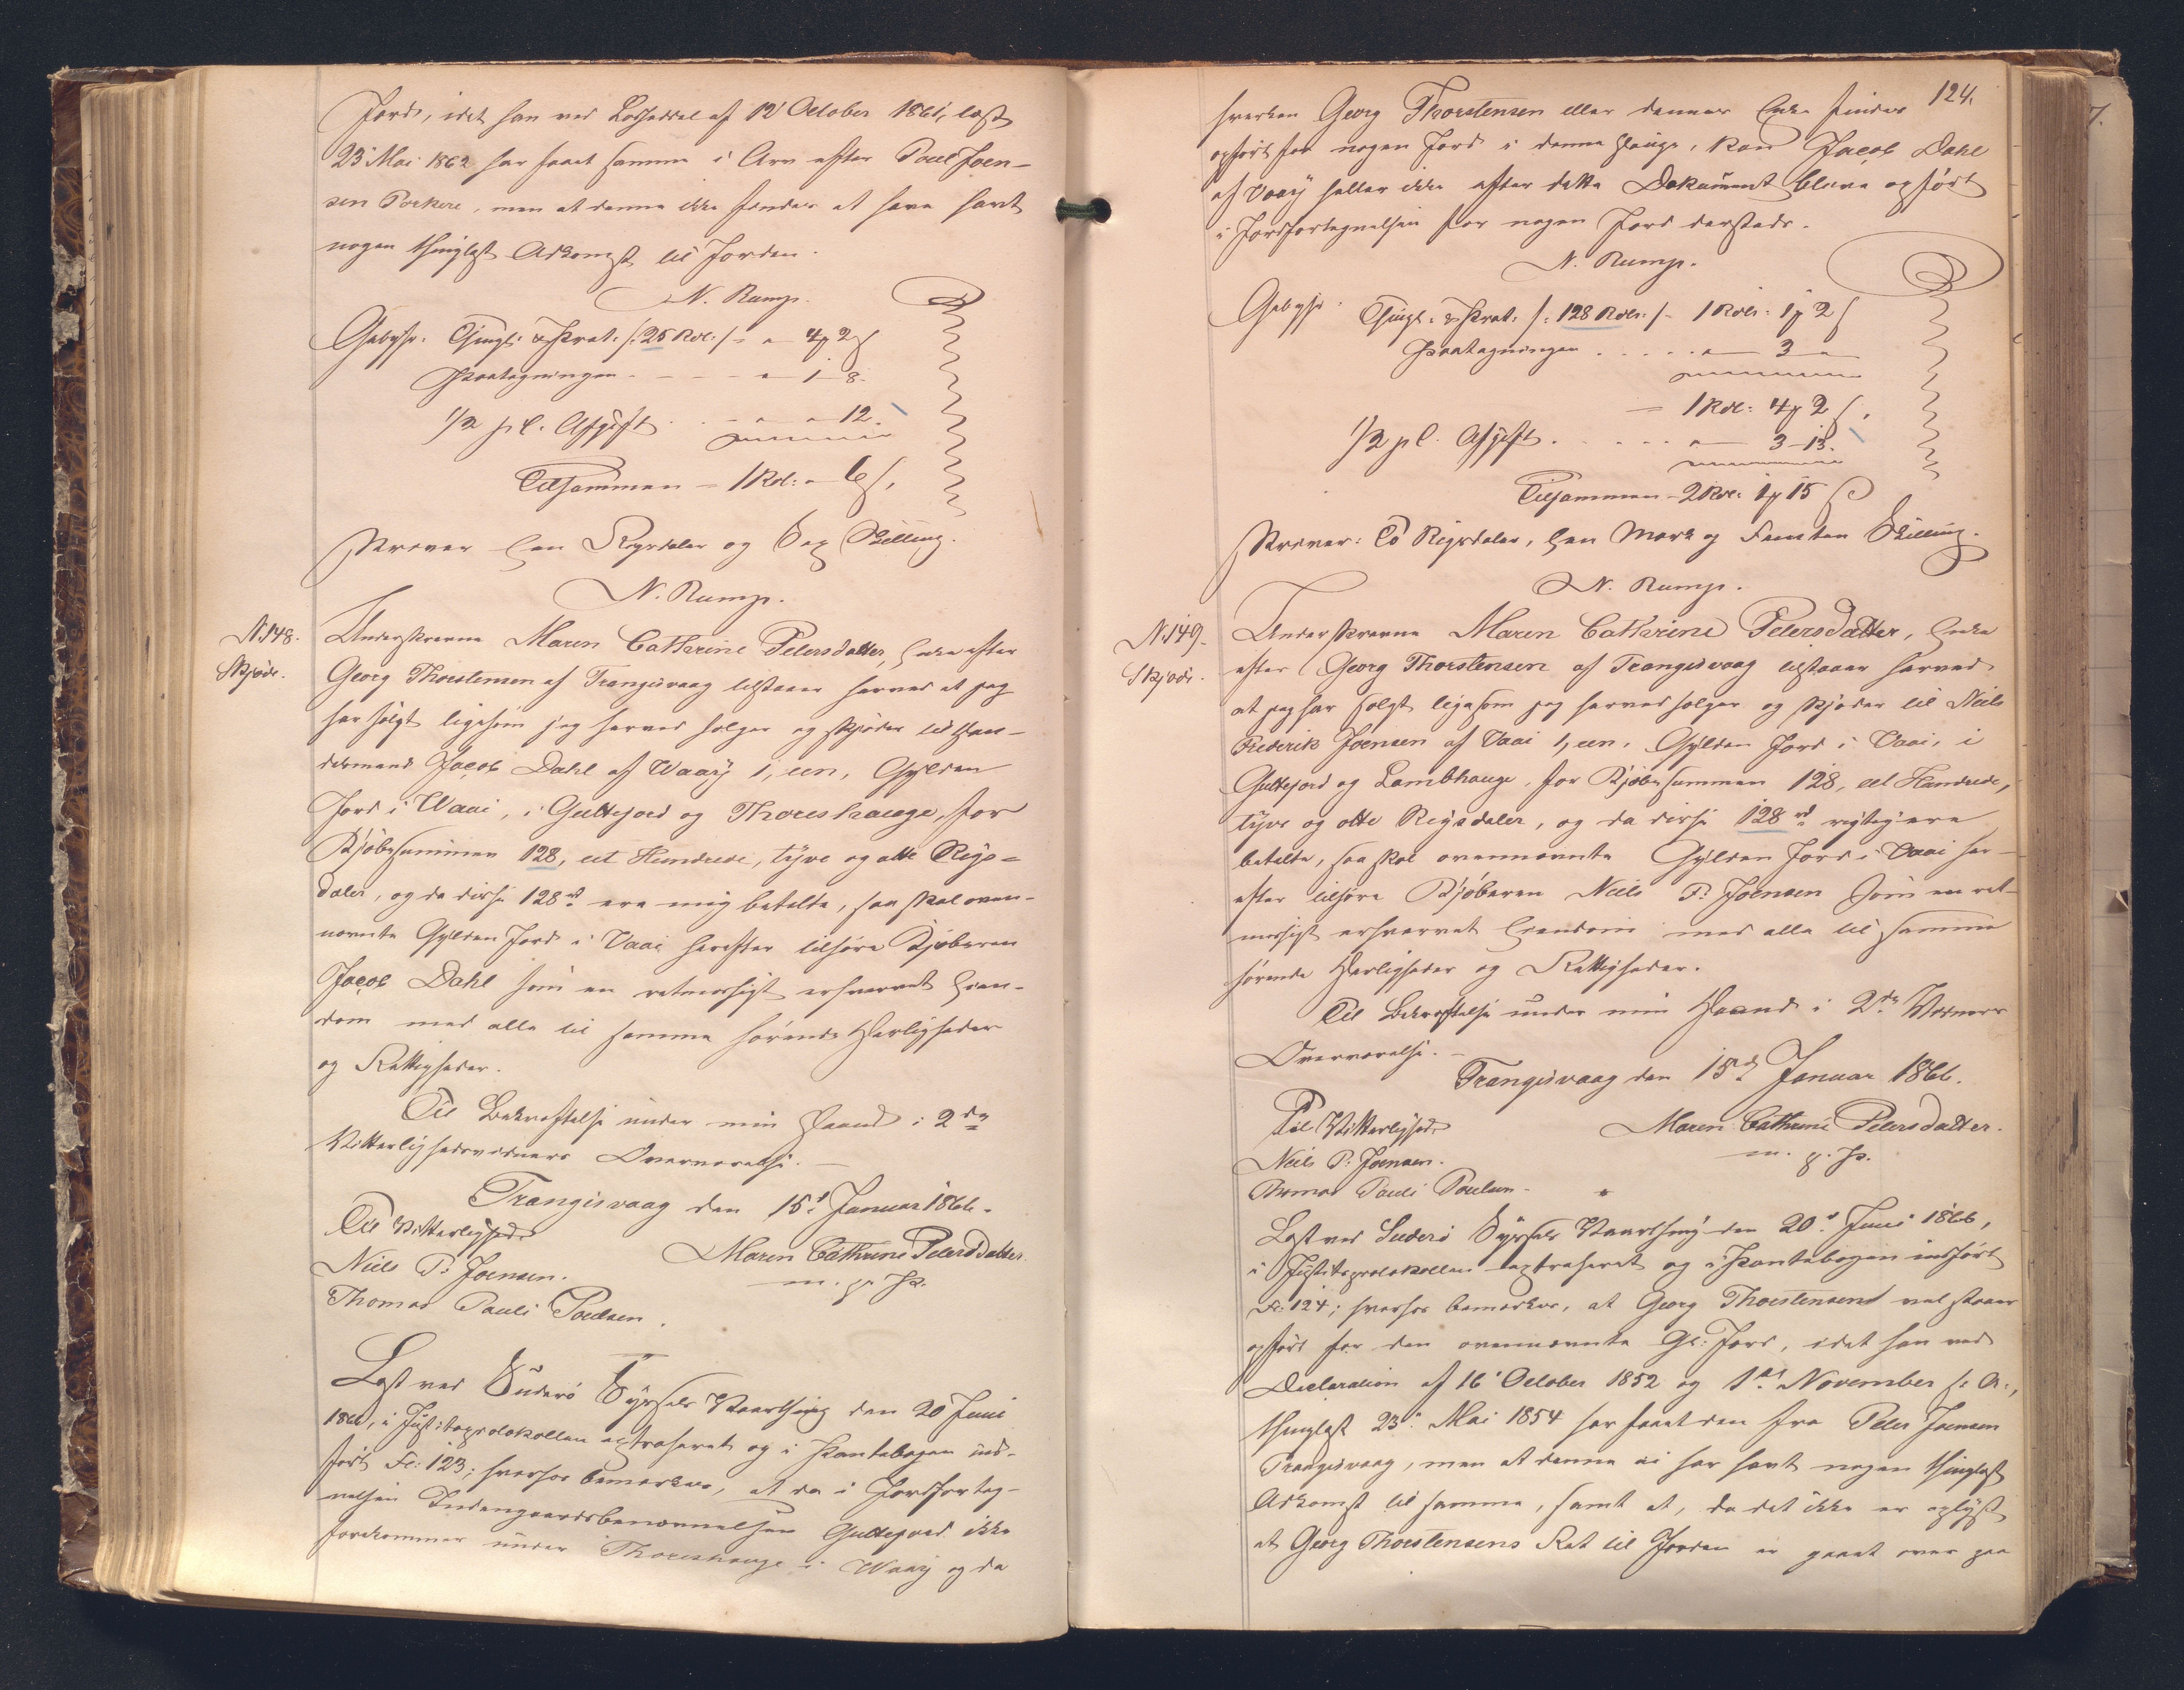 Jord, idet han ved Lodseddel af 12' October 1861, læst
23' Mai 1862 har faaet samme i Arv efter Poul Joen-
sen Porkere, men at denne ikke findes at have havt
nogen thinglæst Adkomst til Jorden.
N. Rump.
Gebyhr. Thingl: & Prot: /: 25 Rdl: /: " 4 ₻ 2 ẞ
Paategningen - - - - " 1 - 8 -
1/2 p C. Afgift - - " " - 12.
Tilsammen = 1 Rdl: " 6 ẞ,
skriver Een Rigsdaler og Sex Skilling.
N. Rump.
N. 148.
Skjøde.
Underskrevne Maren Cathrine Petersdatter, Enke efter
Georg Thorstensen af Trangisvaag tilstaaer herved at jeg
har solgt ligesom jeg herved sælger og skjøder til Han-
delsmand Jacob Dahl af Waaÿ 1, een, Gylden
Jord i Waai, i Gultejord og Thoreshauge, for
Kjøbesummen 128, eet Hundrede, tyve og otte Rigs=
daler, og da disse 128 rd ere mig betalte, saa skal oven-
nævnte Gylden Jord i Vaai herefter tilhøre Kjøberen
Jacob Dahl som en retmæssigt erhvervet Eien-
dom med alle til samme hørende Herligheder
og Rettigheder.
Til Bekræftelse under min Haand i 2de
Vitterlighedsvidners Overværelse. -
Trangisvaag den 15d Januar 1866.
Til Vitterlighed
Maren Cathrine Petersdatter.
Niels P: Joensen.
m. p. P.
Thomas Pauli Poulsen.
Læst ved Suderø Syssels Vaarthing den 20 Juni
1866, i Justitsprotokollen extraheret og i Pantebogen ind-
ført Fol: 123; hvorhos bemærkes, at da i Jordforteg-
nelsen Indengaardsbenævnelsen Gultejord ikke
forekommer under Thoreshauge i Waaÿ og da
124.
hverken Georg Thorstensen eller dennes Enke findes
opført for nogen Jord i denne Hauge, kan Jacob Dahl
af Vaaÿ heller ikke efter dette Dokument blive opført
i Jordfortegnelsen for nogen Jord dersteds.
N. Rump.
Gebyhr. Thingl. & Prot: /: 128 Rdlr: /- 1 Rdlr: 1 ₻ 2 ẞ
Paategningen . . . . . " 3 "
= 1 Rdl: 4 ₻ 2 ẞ.
1/2 p C. Afgift . . . . . " 3 - 13.
Tilsammen - 2 Rdl: 1 ₻ 15 ẞ
skriver: To Rigsdaler, Een Mark og Femten Skilling.
N. Rump.
N. 149.
Skjøde.
Underskrevne Maren Cathrine Petersdatter, Enke
efter Georg Thorstensen af Trangisvaag tilstaaer herved
at jeg har solgt ligesom jeg herved sælger og skjøder til Niels
Frederik Joensen af Vaai 1, een, Gylden Jord i Vaai, i
Gultejord og Lambhauge, for Kjøbesummen 128, eet Hundrede,
tyve og otte Rigsdaler, og da disse 128 rd rigtig ere
betalte, saa skal ovennævnte Gylden Jord i Vaai her-
efter tilhøre Kjøberen Niels F: Joensen som en ret-
mæssigt erhvervet Eiendom med alle til samme
hørende Herligheder og Rettigheder.
Til Bekræftelse under min Haand i 2de Vidners
Overværelse. -
Trangisvaag den 15d Januar 1866.
Til Vitterlighed
Maren Cathrine Petersdatter.
Niels P: Joensen.
m. p. P.
Thomas Pauli Poulsen.
Læst ved Suderø Syssels Vaarthing den 20d Juni 1866,
i Justitsprotokollen extraheret og i Pantebogen indført
Fol: 124; hvorhos bemærkes, at Georg Thorstensen vel staaer
opført for den ovennævnte Gl: Jord, idet han ved
Declaration af 16' October 1852 og 1ste November s: A:,
thinglæst 23' Mai 1854 har faaet den fra Peter Joensen
Trangisvaag, men at denne ei har havt nogen thinglæst
Adkomst til samme, samt at, da det ikke er oplyst
at Georg Thorstensens Ret til Jorden er gaaet over paa